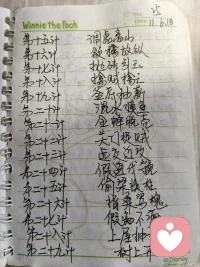 Winnie the Pooh
No. 25
Date 11.6.18
第十五计 调虎离山
第十六计 欲擒故纵
第十七计 抛砖引玉
第十八计 擒贼擒王
第十九计 釜底抽薪
第二十计 混水摸鱼
第二十一计 金蝉脱壳
第二十二计 关门捉贼
第二十三计 远交近攻
第二十四计 假道伐虢
第二十五计 偷梁换柱
第二十六计 指桑骂槐
第二十七计 假痴不
第二十八计 上屋抽
第二十九计 树上开
©Disney